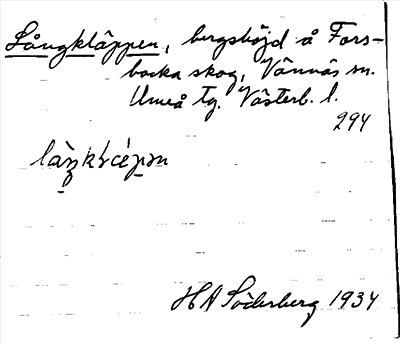 Långkläppen, bergshöjd å Fors-
backa skog, Vännäs sn.
Umeå tg. Västerb. l.
294
H A Söderberg 1934